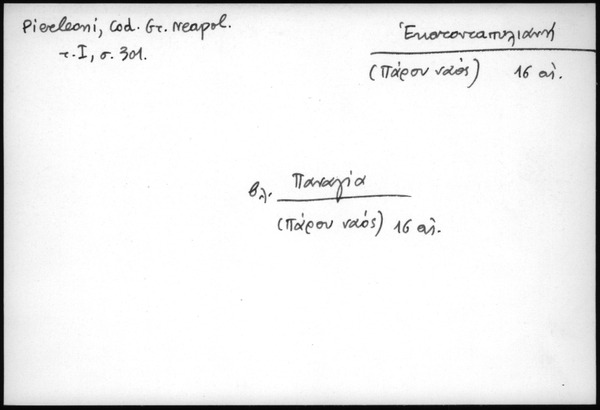 Pierleoni, Cod. Gr. Neapol.
τ. I, σ. 301.
Ἑκατονταπυλιανή
(Πάρου ναός) 16 αἰ.
βλ. Παναγία
(Πάρου ναός) 16 αἰ.